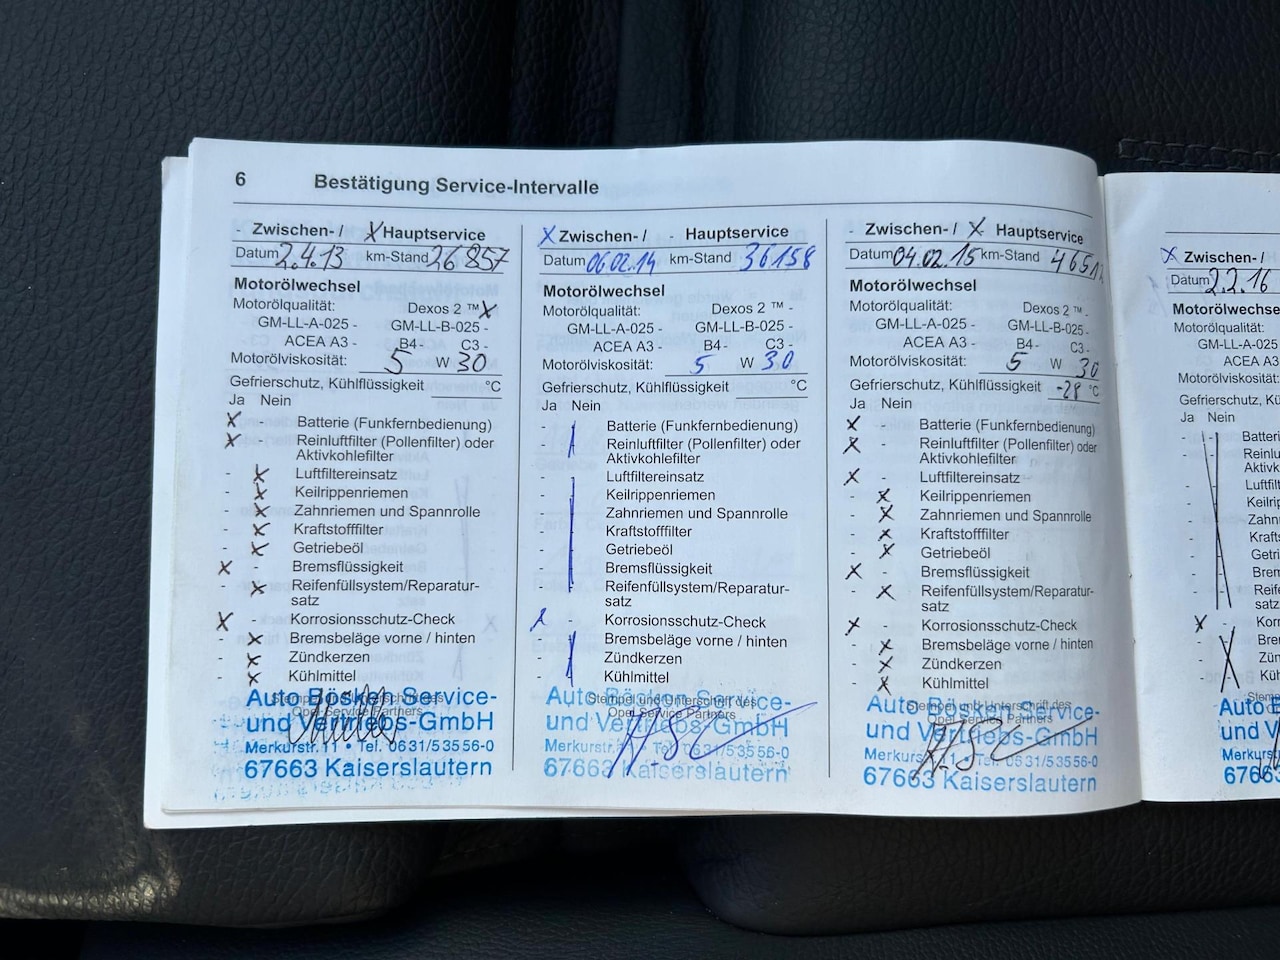 6 Bestätigung Service-Intervalle
- Zwischen- / X Hauptservice
Datum 2.4.13 km-Stand 26857
Motorölwechsel
Motorölqualität: Dexos 2 ™ X
GM-LL-A-025 - GM-LL-B-025 -
ACEA A3 - B4 - C3 -
Motorölviskosität: 5 W 30
Gefrierschutz, Kühlflüssigkeit °C
Ja Nein
X - Batterie (Funkfernbedienung)
X - Reinluftfilter (Pollenfilter) oder
Aktivkohlefilter
- X Luftfiltereinsatz
- X Keilrippenriemen
- X Zahnriemen und Spannrolle
- X Kraftstofffilter
- X Getriebeöl
X - Bremsflüssigkeit
- X Reifenfüllsystem/Reparatur-
satz
X - Korrosionsschutz-Check
- X Bremsbeläge vorne / hinten
- X Zündkerzen
- X Kühlmittel
Stempel und Unterschrift des
Opel Service Partners
Auto Bösken Service-
und Vertriebs-GmbH
Merkurstr. 11 • Tel. 0631/53556-0
67663 Kaiserslautern
X Zwischen- / - Hauptservice
Datum 06.02.14 km-Stand 36158
Motorölwechsel
Motorölqualität: Dexos 2 ™ -
GM-LL-A-025 - GM-LL-B-025 -
ACEA A3 - B4 - C3 -
Motorölviskosität: 5 W 30
Gefrierschutz, Kühlflüssigkeit °C
Ja Nein
- Batterie (Funkfernbedienung)
- Reinluftfilter (Pollenfilter) oder
Aktivkohlefilter
- Luftfiltereinsatz
- Keilrippenriemen
- Zahnriemen und Spannrolle
- Kraftstofffilter
- Getriebeöl
- Bremsflüssigkeit
- Reifenfüllsystem/Reparatur-
satz
X - Korrosionsschutz-Check
- Bremsbeläge vorne / hinten
- Zündkerzen
- Kühlmittel
Stempel und Unterschrift des
Opel Service Partners
Auto Bösken Service-
und Vertriebs-GmbH
Merkurstr. 11 • Tel. 0631/53556-0
67663 Kaiserslautern
- Zwischen- / X Hauptservice
Datum 04.02.15 km-Stand
Motorölwechsel
Motorölqualität: Dexos 2 ™ -
GM-LL-A-025 - GM-LL-B-025 -
ACEA A3 - B4 - C3 -
Motorölviskosität: 5 W 30
Gefrierschutz, Kühlflüssigkeit -28 °C
Ja Nein
X - Batterie (Funkfernbedienung)
X - Reinluftfilter (Pollenfilter) oder
Aktivkohlefilter
X - Luftfiltereinsatz
- X Keilrippenriemen
- X Zahnriemen und Spannrolle
- X Kraftstofffilter
- X Getriebeöl
X - Bremsflüssigkeit
- X Reifenfüllsystem/Reparatur-
satz
X - Korrosionsschutz-Check
- X Bremsbeläge vorne / hinten
- X Zündkerzen
- X Kühlmittel
Stempel und Unterschrift des
Opel Service Partners
Auto Bösken Service-
und Vertriebs-GmbH
Merkurstr. 11 • Tel. 0631/53556-0
67663 Kaiserslautern
X Zwischen- /
Datum 2.2.16
Motorölwechsel
Motorölqualität:
GM-LL-A-025
ACEA A3
Motorölviskosität:
Gefrierschutz, Kü
Ja Nein
Batterie
Reinlu
Aktivk
Luftfilt
Keilrip
Zahnr
Krafts
Getrie
Brem
Reife
satz
X Korr
Brem
Zünd
Küh
Stemp
Auto B
und V
Merkurs
6766